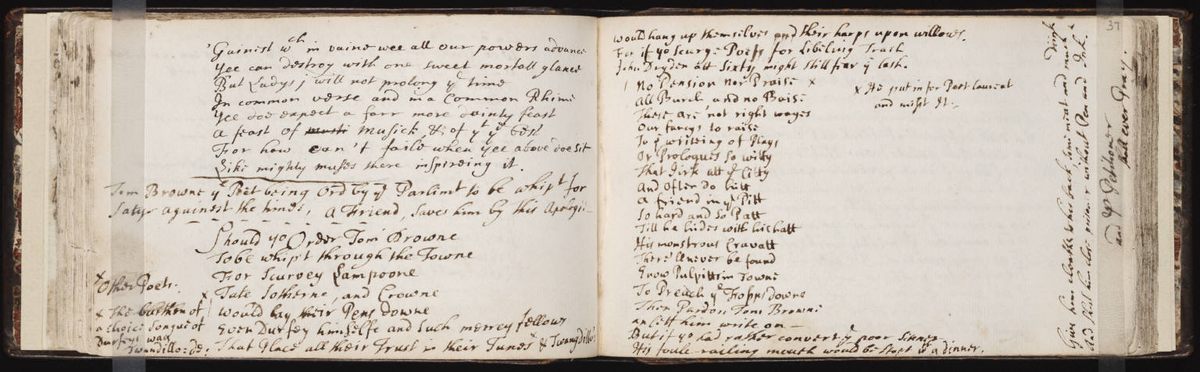 'Gainist wch in vaine wee all our powers advance
Yee can destroy with one sweet mortall glance
But Ladys j will not prolong ye time
In common verse and in a Common Rhime
Yee doe expect a farr more dainty feast
A feast of Musick, & of ye best
For how can't faile when yee above doe sit
Like mighty muses there inspireing it.
Tom Browne ye Poet being Ord by ye Parlient to be whipt for
Satyr against the times, A Friend, saves him by this Apologie
Should yo Order Tom Browne
To be whipt through the Towne
For Scurvey Lampoone
x Other Poets.
Tate Sotherne, and Crowne
x would lay their Pens downe
Even Durfey himselfe and such merrey fellows
That Place all their Trust in their Tunes & Twangdillo's
x The burthen of
a choice songue of
Durfeys was
Twandillo: de:
37
would hang up themselves and their harps upon willows.
For if yo scurge Poets for Libeling Trash
John Dryden att Sixty might still fear ye lash.
No Pension nor Praise x
All Burch and no Baise
These are not right wayes
Our fancys to raise
To ye writeing of Plays
Or Prologues so witty
That Jirk att ye Citty
And Often do hitt
A friend in ye Pitt
So hard and so Patt
Till he hides with his hatt
His monstrous Cravatt
There'll never be found
Enow Pulpitts in Towne
To Preach ye Fopps downe
Then Pardon Tom Browne
an lett him write on
But if yo had rather convert ye poor sinner
His foule raileing mouth would be stopt wth a dinner.
x He put in for Poet Laureat
and mist It
Give him cloaths to his back, some meat and much drink
And that he lies prison'r without Pen and Ink.
and yr Petitioner
shall ever Pray.